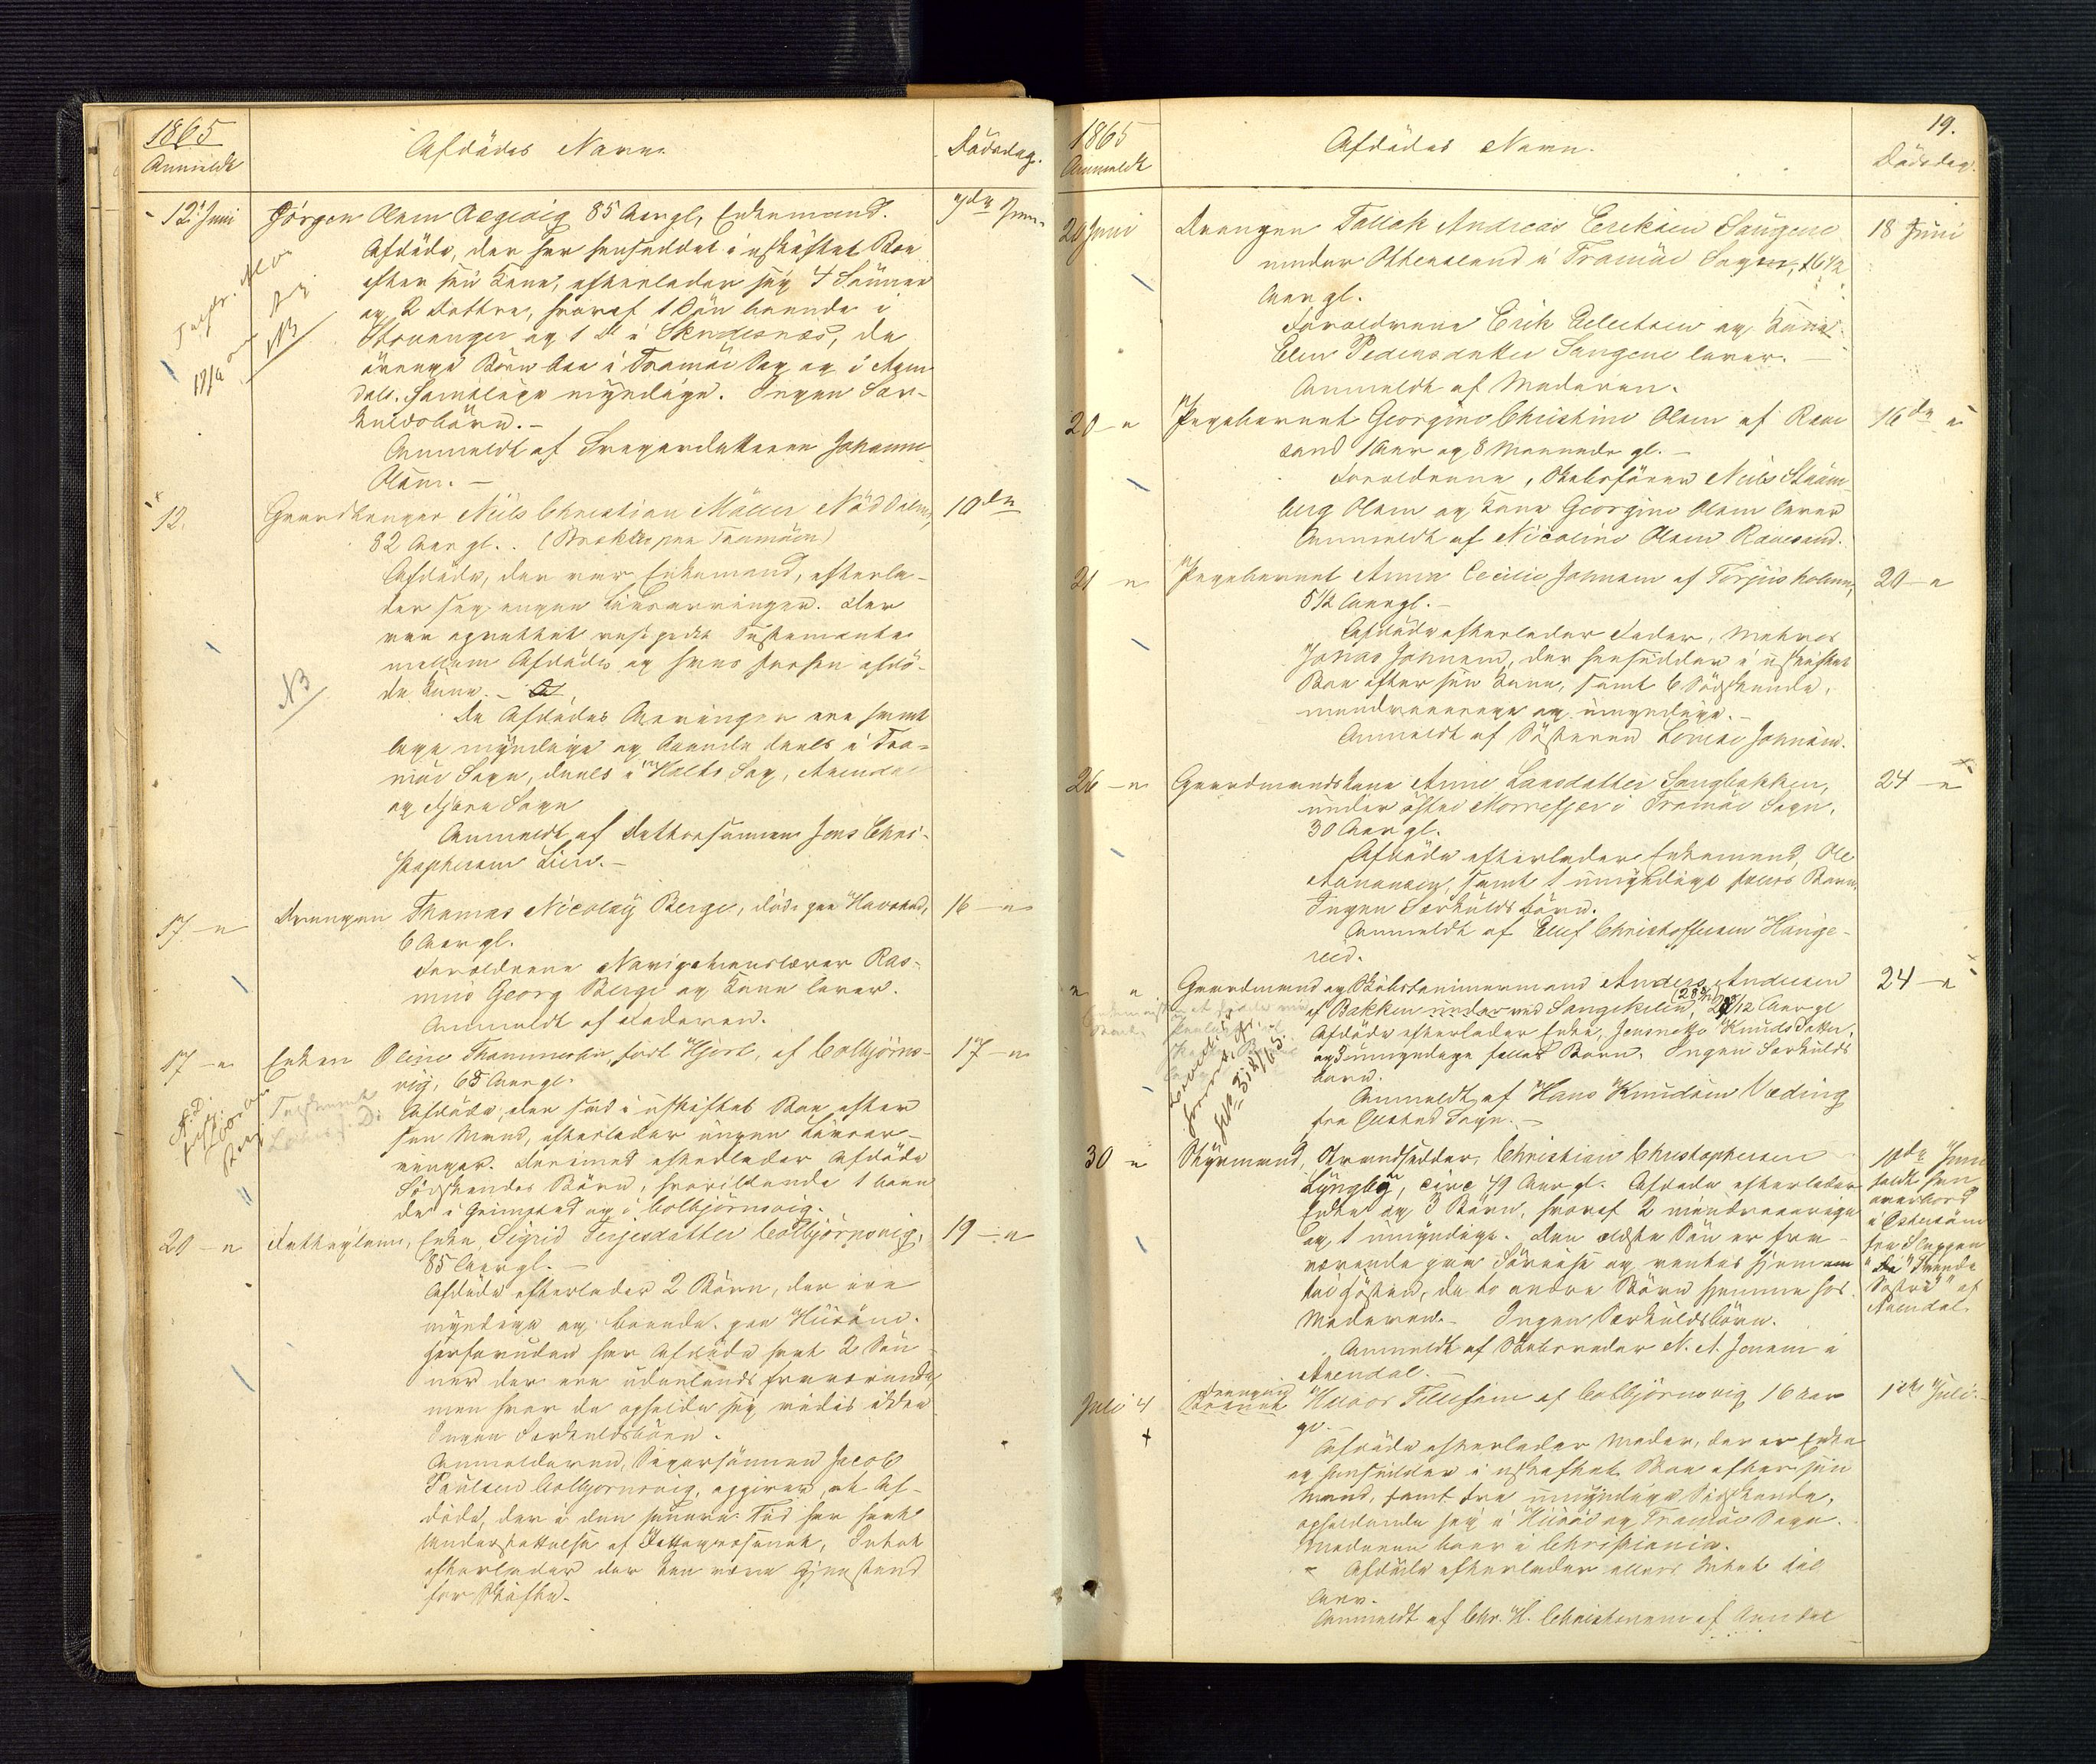 1865
Anmeldt
Afdödes Navn.
Dödsdag.
12 Juni
Jörgen Olsen Aegevig 85 Aar gl, Enkemand.
7de Juni
Afdöde, der har hensiddet i uskiftet Boe
efter sin Kone, efterlader sig 4 Sönner
og 2 Döttre, hvoraf 1 Sön boende i
Stavanger og 1 D i Skudesnæs, de
övrige Börn boe i Tromöe Sogn og i Aren
dal. Samtlige myndige. Ingen Sær-
kuldsbörn.-
Anmeldt af Svigerdatteren Johanne
Olsen.-
NB
12.
Gaardbruger Niels Christian Möller
10de
82 Aar gl. (Brække paa Tromöen)
Afdöde, der var Enkemand, efterla-
der sig ingen Livsarvinger. Der
var oprettet Testamente
mellem Afdöde og hans forhen afdö-
de Kone.-
NB
De Afdödes Arvinger ere samt
lige myndige og boende deels i Tro-
möe Sogn, deels i Holts Sogn, Arendal
og Sogn
Anmeldt af Dattersönnen Jens Chri-
stophersen Lien.-
17-"
Drengen Thomas Nicolay Berge, död paa Havsund,
16-"
6 Aar gl.
Forældrene Navigationslærer Ras-
mus Georg Berge og Kone lever.
Anmeldt af Faderen.
17-"
Enken Oline Thommesen, födt Hjort, af Colbjörns-
17-"
vig, 65 Aar gl.
Afdöde, der sad i uskiftet Boe efter
sin Mand, efterlader ingen Livsar-
vinger. Derimod efterlader Afdöde
Södskendes Börn, 1 boen
de i Grimstad og i Colbjörnsvig.
20-"
Fattiglem, Enke Sigrid Terjesdatter Colbjörnsvig,
19-"
85 Aar gl.-
Afdöde efterlader 2 Börn, der ere
myndige og boende paa Hisöen.
Herforuden har Afdöde havt 2 Sön
ner der ere udenlands fraværende,
men hvor de opholde sig vides ikke.
Ingen Særkuldsbörn.
Anmelderen, Svigersönnen Jacob
Paulsen Colbjornsvig, opgiver, at Af-
döde, der i den senere Tid har havt
Understöttelse af Fattigvæsenet, Intet
efterlader der kan være Gjenstand
for Skifte.
1865
Anmeldt
Afdödes Navn.
19.
Dödsdag.
20 Juni
Drengen Tallak Andreas Eriksen Songene
18 Juni
under Ottersland i Tromöe Sogn, 16 1/2
Aar gl.
Forældrene Erik Ellefsen og Kone
Elen Pedersdatter Songene lever.-
Anmeldt af Moderen.
20-"
Pigebarnet Georgine Christine Olsen af Reve
16de "
sand 1 Aar og 8 Maaneder gl.-
Forældrene, Skibsförer Niels Ståm
berg Olsen og Kone Georgine Olsen lever
Anmeldt af Nicoline Olsen Rævesand.
21-"
Pigebarnet Anna Cecilie Johnsen af Torjusholmen,
20-"
5 1/2 Aar gl.-
Afdöde efterlader Fader, Matros
Jonas Johnsen, der hensidder i uskiftet
Boe efter sin Kone, samt 6 Södskende,
mindreaarige og umyndige.-
Anmeldt af Södsteren Lovise Johnsen.
26-"
Gaardmandskone Anne Larsdatter Songebakken,
24-"
under östre Mörefjær i Tromöe Sogn,
30 Aar gl.
Afdöde efterlader Enkemand, Ole
Aanonsen, samt 1 umyndige fælles Barn.
Ingen Særkuldsbörn.
Anmeldt af Elluf Christoffersen Hauge-
reid.
" "
Gaardmand og Skibstömmermand Anders Andersen
24-"
af Bakken under ved Songekilen, 28 5/12 Aar gl
Afdöde efterlader Enke, Jensmette Knudsdatter,
og 3 umyndige fælles Barn. Ingen Særkulds
barn.
Anmeldt af Hans Knudsen Væding
fra Öiestad Sogn.-
30-"
Styrmand, Strandsidder, Christian Christophersen
10de Juni
Lyngby, circa 49 Aar gl. Afdöde efterlader
faldt han
Enke og 3 Börn, hvoraf 2 mindreaarige
overbord
og 1 umyndige. Den ældste Sön er fra-
i Östersöen
værende paa Söreise og ventes hjem
fra Skuppen
til Hösten, de to andre Börn hjemme hos
"De Trende
Moderen.- Ingen Særkuldsbörn.
Söstre" af
Arendal.
Anmeldt af Skibsreder N. A. Jensen i
Arendal.-
Juli 4
Drengen Halvor Tellefsen af Colbjörnsvig 16 Aar
1ste Juli.
gl.-
Afdöde efterlader Moder, der er Enke
og hensidder i uskiftet Boe efter sin
Mand, samt tre umyndige Södskende,
opholdende sig i Hisöe og Tromöe Sogn.
Moderen boer i Christiania.
Afdöde efterlader ellers Intet til
Arv.
Anmeldt af Chr. H. Christensen af Arendal